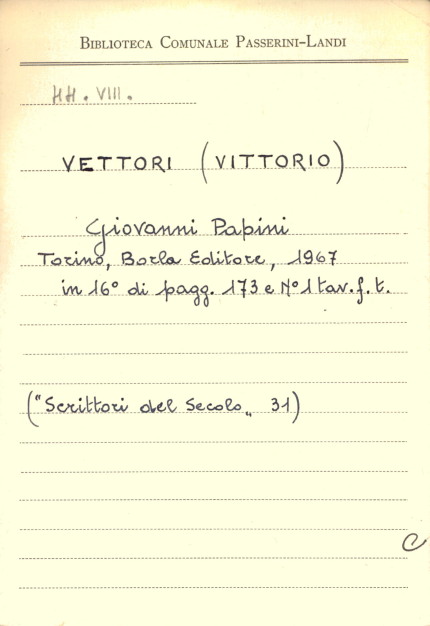 BIBLIOTECA COMUNALE PASSERINI-LANDI
HH. VIII.
VETTORI (VITTORIO)
Giovanni Papini
Torino, Borla Editore, 1967
in 16° di pagg. 173 e N° 1 tav. f. t.
("Scrittori del Secolo„ 31)
C